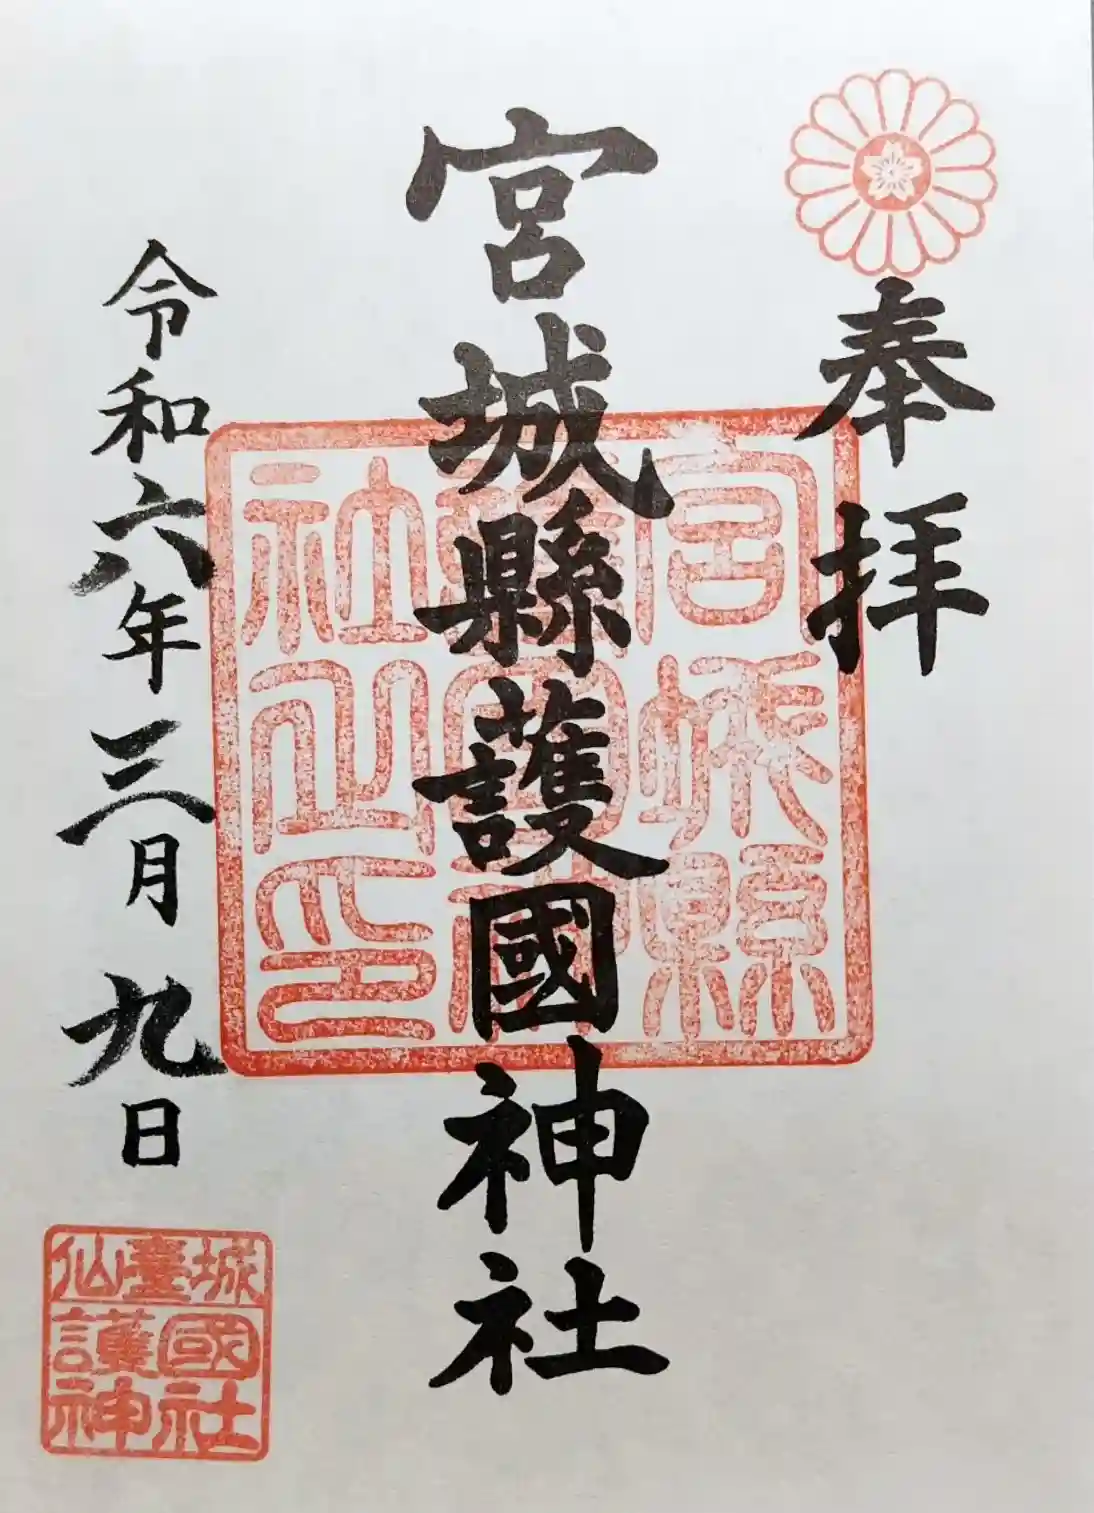 奉拝
宮城縣護國神社
宮城縣護國神社之印
令和六年三月九日
仙臺城
護國
神社